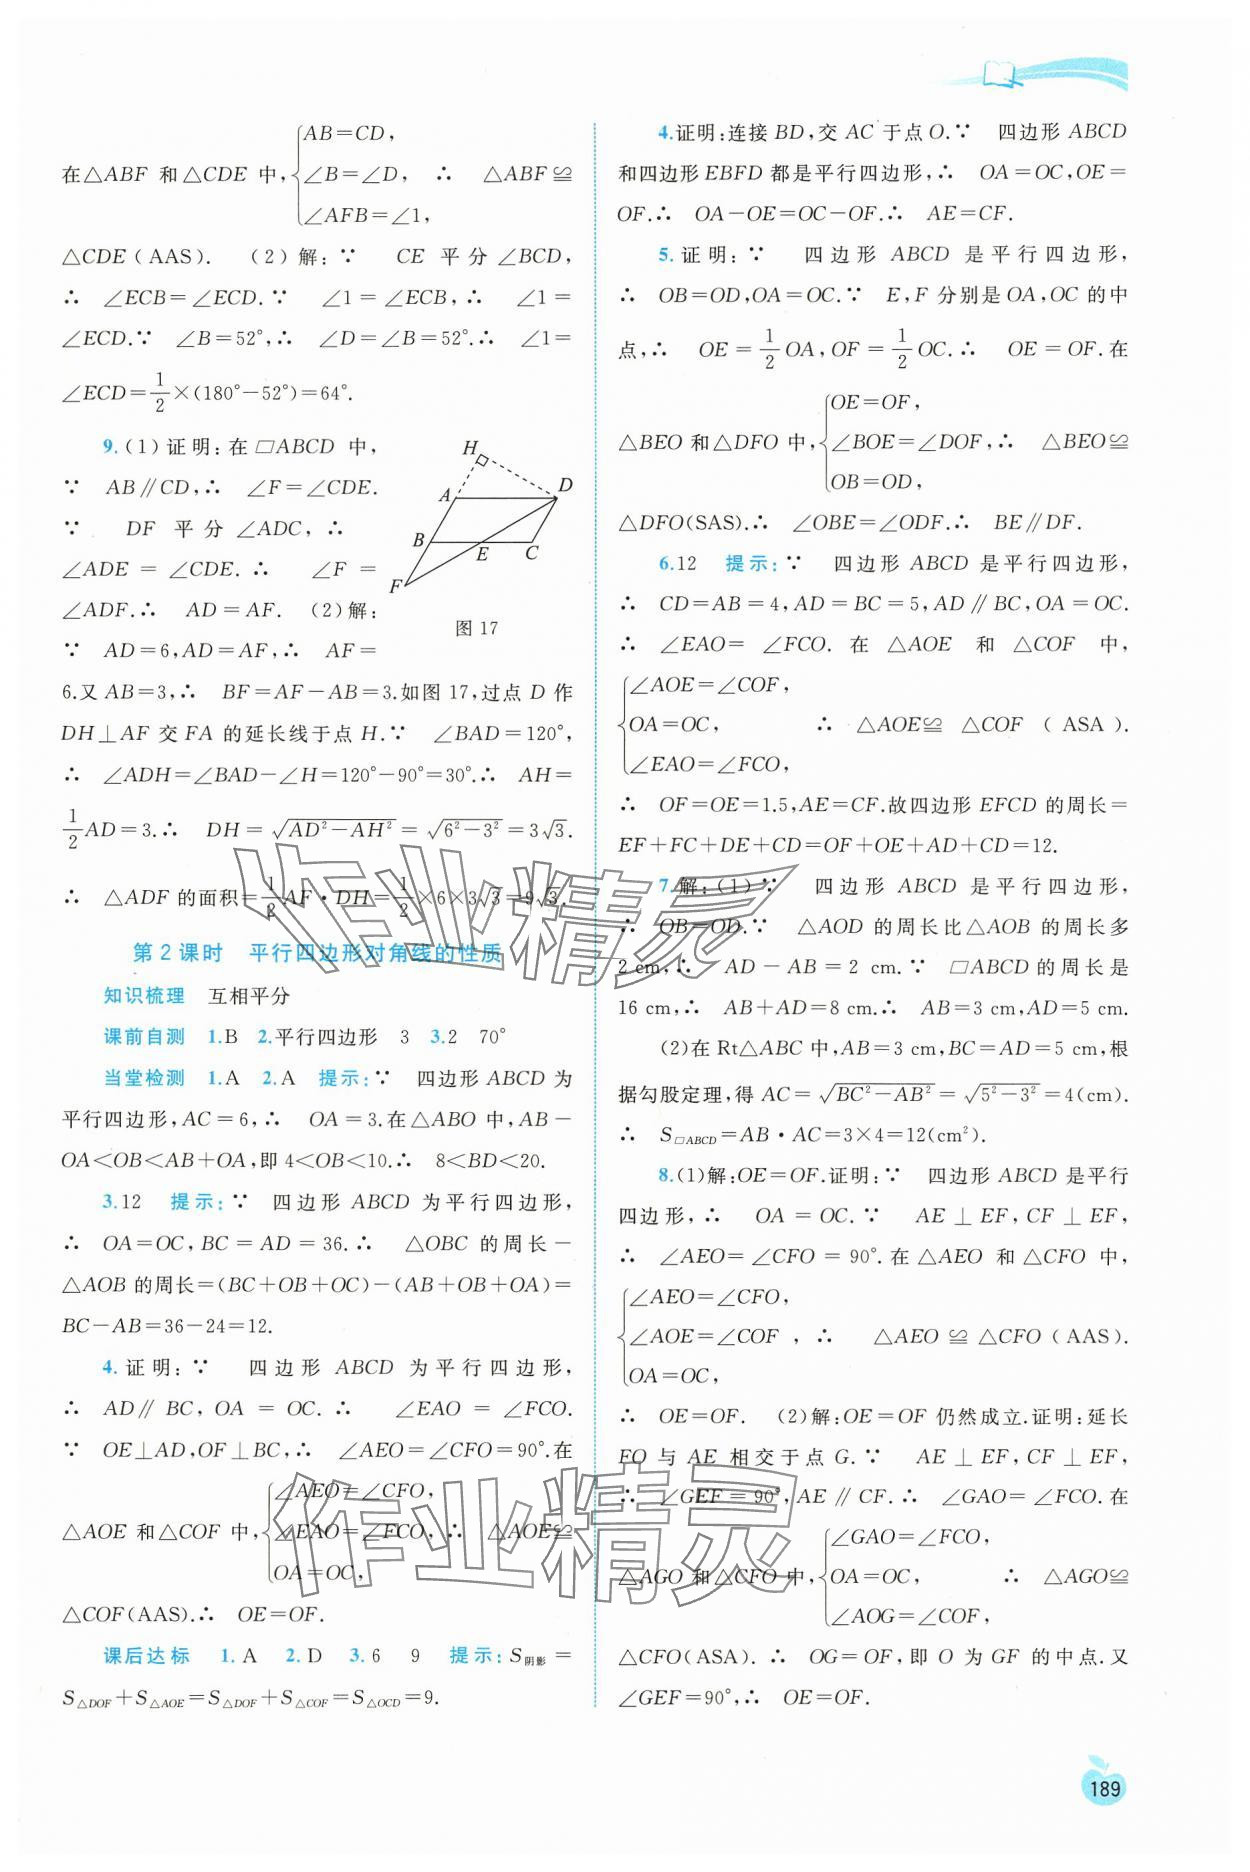 在△ABF 和△CDE 中,{AB=CD, ∠B=∠D, ∠AFB=∠1, ∴ △ABF≌
△CDE(AAS). (2)解:∵ CE 平分∠BCD,
∴ ∠ECB=∠ECD.∵ ∠1=∠ECB,∴ ∠1=
∠ECD.∵ ∠B=52°,∴ ∠D=∠B=52°.∴ ∠1=
∠ECD=1/2×(180°-52°)=64°.
9.(1)证明:在▱ABCD 中,
∵ AB∥CD,∴ ∠F=∠CDE.
∵ DF 平分∠ADC,∴
∠ADE=∠CDE.∴ ∠F=
∠ADF.∴ AD=AF. (2)解:
∵ AD=6,AD=AF,∴ AF=
H
A
D
B
E
C
F
图 17
6.又 AB=3,∴ BF=AF-AB=3.如图 17,过点 D 作
DH⊥AF 交 FA 的延长线于点 H.∵ ∠BAD=120°,
∴ ∠ADH=∠BAD-∠H=120°-90°=30°.∴ AH=
1/2AD=3.∴ DH=√(AD²-AH²)=√(6²-3²)=3√3.
∴ △ADF 的面积=1/2AF·DH=1/2×6×3√3=9√3.
第 2 课时 平行四边形对角线的性质
知识梳理 互相平分
课前自测 1.B 2.平行四边形 3 3.2 70°
当堂检测 1.A 2.A 提示:∵ 四边形 ABCD 为
平行四边形,AC=6,∴ OA=3.在△ABO 中,AB-
OA<OB<AB+OA,即 4<OB<10.∴ 8<BD<20.
3.12 提示:∵ 四边形 ABCD 为平行四边形,
∴ OA=OC,BC=AD=36.∴ △OBC 的周长-
△AOB 的周长=(BC+OB+OC)-(AB+OB+OA)=
BC-AB=36-24=12.
4.证明:∵ 四边形 ABCD 为平行四边形,
∴ AD∥BC,OA=OC.∴ ∠EAO=∠FCO.
∵ OE⊥AD,OF⊥BC,∴ ∠AEO=∠CFO=90°.在
△AOE 和△COF 中,{∠AEO=∠CFO, ∠EAO=∠FCO, OA=OC, ∴ △AOE≌
△COF(AAS).∴ OE=OF.
课后达标 1.A 2.D 3.6 9 提示:S阴影=
S△DOF+S△AOE=S△DOF+S△COF=S△OCD=9.
4.证明:连接 BD,交 AC 于点 O.∵ 四边形 ABCD
和四边形 EBFD 都是平行四边形,∴ OA=OC,OE=
OF.∴ OA-OE=OC-OF.∴ AE=CF.
5.证明:∵ 四边形 ABCD 是平行四边形,
∴ OB=OD,OA=OC.∵ E,F 分别是 OA,OC 的中
点,∴ OE=1/2OA,OF=1/2OC.∴ OE=OF.在
△BEO 和△DFO 中,{OE=OF, ∠BOE=∠DOF, OB=OD, ∴ △BEO≌
△DFO(SAS).∴ ∠OBE=∠ODF.∴ BE∥DF.
6.12 提示:∵ 四边形 ABCD 是平行四边形,
∴ CD=AB=4,AD=BC=5,AD∥BC,OA=OC.
∴ ∠EAO=∠FCO.在△AOE 和△COF 中,
{∠AOE=∠COF, OA=OC, ∠EAO=∠FCO, ∴ △AOE≌△COF(ASA).
∴ OF=OE=1.5,AE=CF.故四边形 EFCD 的周长=
EF+FC+DE+CD=OF+OE+AD+CD=12.
7.解:(1)∵ 四边形 ABCD 是平行四边形,
∴ OB=OD.∵ △AOD 的周长比△AOB 的周长多
2 cm,∴ AD-AB=2 cm.∵ ▱ABCD 的周长是
16 cm,∴ AB+AD=8 cm.∴ AB=3 cm,AD=5 cm.
(2)在 Rt△ABC 中,AB=3 cm,BC=AD=5 cm,根
据勾股定理,得 AC=√(BC²-AB²)=√(5²-3²)=4(cm).
∴ S▱ABCD=AB·AC=3×4=12(cm²).
8.(1)解:OE=OF.证明:∵ 四边形 ABCD 是平行
四边形,∴ OA=OC.∵ AE⊥EF,CF⊥EF,
∴ ∠AEO=∠CFO=90°.在△AEO 和△CFO 中,
{∠AEO=∠CFO, ∠AOE=∠COF, OA=OC, ∴ △AEO≌△CFO(AAS).
∴ OE=OF. (2)解:OE=OF 仍然成立.证明:延长
FO 与 AE 相交于点 G.∵ AE⊥EF,CF⊥EF,
∴ ∠GEF=90°,AE∥CF.∴ ∠GAO=∠FCO.在
△AGO 和△CFO 中,{∠GAO=∠FCO, OA=OC, ∠AOG=∠COF, ∴ △AGO≌
△CFO(ASA).∴ OG=OF,即 O 为 GF 的中点.又
∠GEF=90°,∴ OE=OF.
189
作业精灵
作业精灵